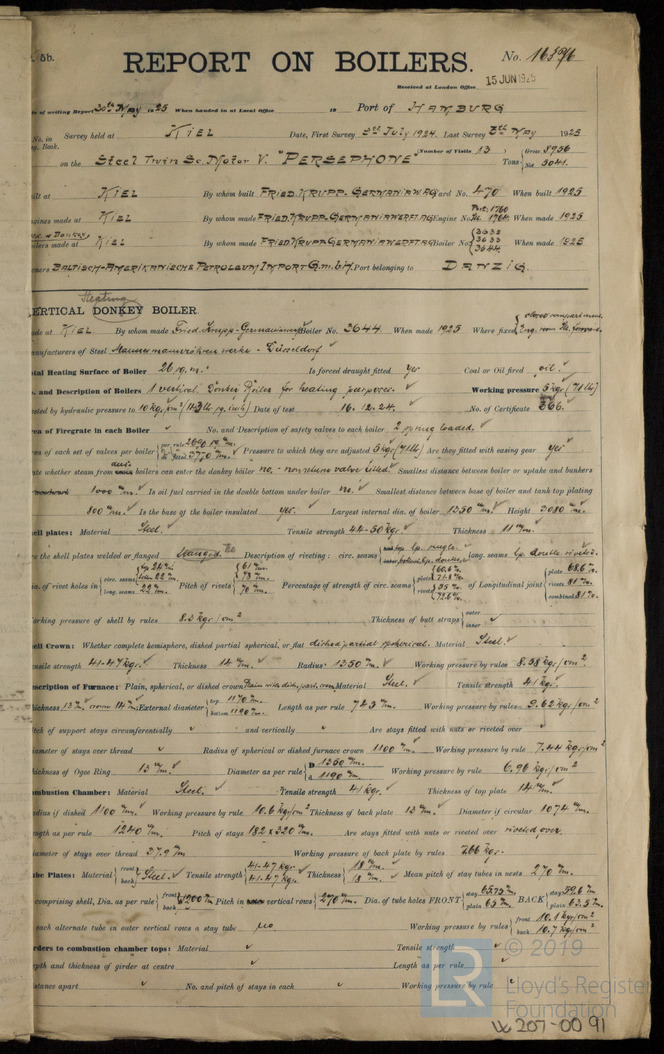 5b.
REPORT ON BOILERS.
No. 16596
Received at London Office 15 JUN 1925
of writing Report 30th May 1925 When handed in at Local Office 19 Port of HAMBURG
No. in Survey held at KIEL Date, First Survey 3rd July 1924. Last Survey May 1925
Book.
(Number of Visits 13)
on the Steel Twin Sc. Motor V. "PERSEPHONE" Tons { Gross 8956 Net 5041.
built at KIEL By whom built FRIED. KRUPP-GERMANIAWERFT AG Yard No. 470 When built 1925
Engines made at KIEL By whom made FRIED. KRUPP-GERMANIAWERFT AG Engine No. 1760 1764 When made 1925
Boilers made at KIEL By whom made FRIED. KRUPP GERMANIAWERFT AG Boiler No. { 3632 3633 3644 When made 1925
Owners BALTISCH-AMERIKANISCHE PETROLEUM IMPORT G.m.b.H. Port belonging to DANZIG.
Heating
VERTICAL DONKEY BOILER.
Made at KIEL By whom made Fried. Krupp-Germaniawerft Boiler No. 3644 When made 1925 Where fixed
Manufacturers of Steel Mannesmannröhrenwerke - Düsseldorf
Total Heating Surface of Boiler 26 sq. m. Is forced draught fitted yes Coal or Oil fired oil.
No. and Description of Boilers 1 vertical Donkey Boiler for heating purposes. Working pressure 5 kg. (71 lb)
Tested by hydraulic pressure to 10 kg/cm² Date of test 16.12.24. No. of Certificate 366.
Area of Firegrate in each Boiler No. and Description of safety valves to each boiler 2 spring loaded.
Area of each set of valves per boiler { per rule as fitted Pressure to which they are adjusted 5 kg. (71 lb) Are they fitted with easing gear yes
State whether steam from main boilers can enter the donkey boiler no. - non return valve fitted. Smallest distance between boiler or uptake and bunkers
1000 mm. Is oil fuel carried in the double bottom under boiler no. Smallest distance between base of boiler and tank top plating
800 mm. Is the base of the boiler insulated yes. Largest internal dia. of boiler 1250 mm. Height 3080 mm.
Shell plates: Material Steel. Tensile strength 44-50 kg. Thickness 11 mm.
Are the shell plates welded or flanged Description of riveting: circ. seams long. seams lp. double riveted.
Dia. of rivet holes in { circ. seams long. seams 22 mm. Pitch of rivets Percentage of strength of circ. seams of Longitudinal joint { plate 68.6 % rivets 81 % combined 81 %
Working pressure of shell by rules 8.2 kg/cm² Thickness of butt straps { outer inner
Shell Crown: Whether complete hemisphere, dished partial spherical, or flat dished partial spherical. Material Steel.
Tensile strength 41-47 kg. Thickness 14 mm. Radius 1250 mm. Working pressure by rules 8.58 kg/cm².
Description of Furnace: Plain, spherical, or dished crown Plain with dish. part. crown Material Steel. Tensile strength 41 kg.
Thickness 13 mm. crown 14 mm. External diameter { top 1170 mm. bottom 1190 mm. Length as per rule 745 mm. Working pressure by rules 9.62 kg/cm²
Pitch of support stays circumferentially and vertically Are stays fitted with nuts or riveted over
Diameter of stays over thread Radius of spherical or dished furnace crown 1100 mm. Working pressure by rule 7.44 kg/cm²
Thickness of Ogee Ring 13 mm. Diameter as per rule { D 1250 mm. d 1190 mm. Working pressure by rule 6.96 kg/cm²
Combustion Chamber: Material Steel. Tensile strength 41 kg. Thickness of top plate 14 mm.
Radius if dished 1100 mm. Working pressure by rule 10.6 kg/cm² Thickness of back plate 13 mm. Diameter if circular 1074 mm.
Length as per rule 1240 mm. Pitch of stays 182 x 320 mm. Are stays fitted with nuts or riveted over riveted over.
Diameter of stays over thread 37.9 mm Working pressure of back plate by rules 7.66 kg.
Tube Plates: Material { front back Steel. Tensile strength { 41-47 kg. 41-47 kg. Thickness { 18 mm. 18 mm. Mean pitch of stay tubes in nests 270 mm.
If comprising shell, Dia. as per rule { front back 1200 mm. Pitch in outer vertical rows 270 mm. Dia. of tube holes FRONT { stay 65.75 mm plain 65 mm. BACK { stay 59.6 mm plain 63.5 mm.
Is each alternate tube in outer vertical rows a stay tube no Working pressure by rules { front 10.1 kg/cm² back 10.7 kg/cm²
Girders to combustion chamber tops: Material Tensile strength
Depth and thickness of girder at centre Length as per rule
Distance apart No. and pitch of stays in each Working pressure by rule
© 2019
Lloyd's Register
Foundation
LR
W207-0091